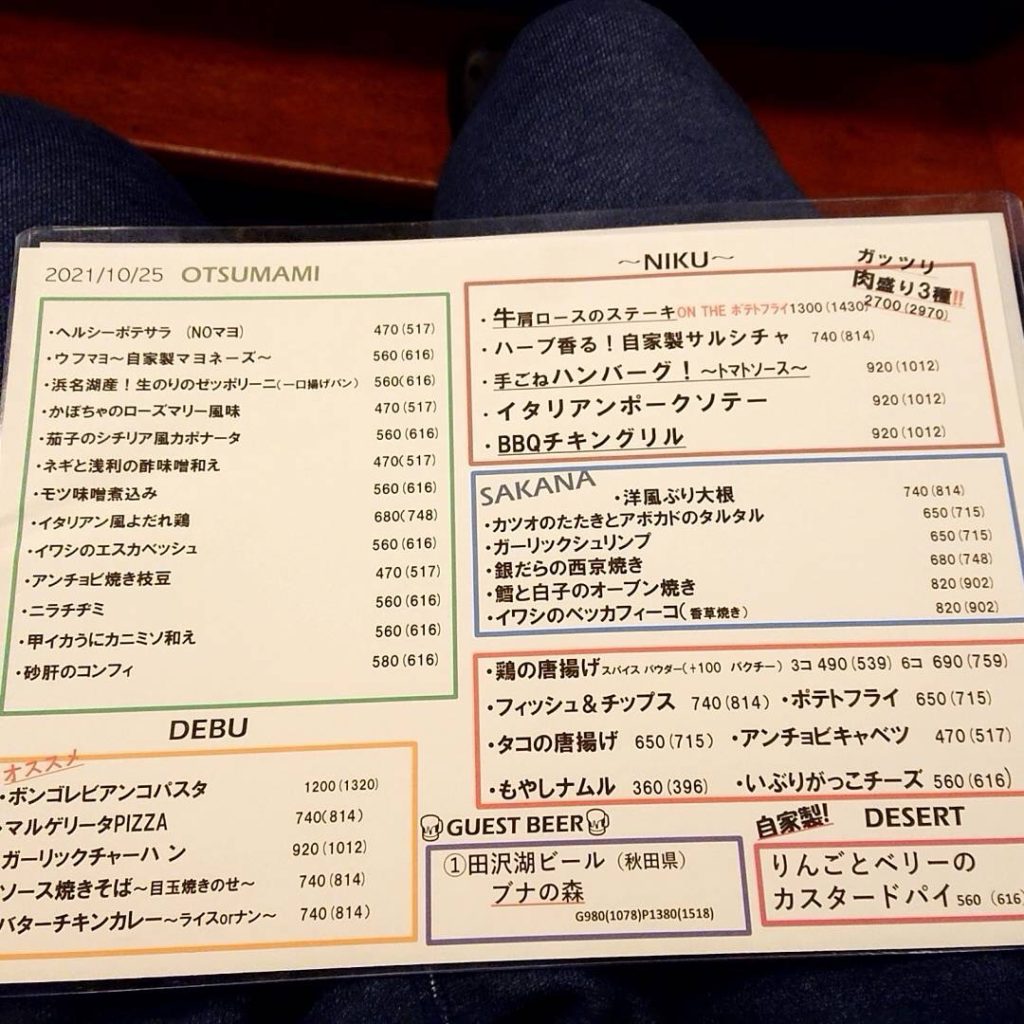 2021/10/25 OTSUMAMI
・ヘルシーポテサラ （NOマヨ） 470(517)
・ウフマヨ～自家製マヨネーズ～ 560(616)
・浜名湖産！生のりのゼッポリーニ(一口揚げパン) 560(616)
・かぼちゃのローズマリー風味 470(517)
・茄子のシチリア風カポナータ 560(616)
・ネギと浅利の酢味噌和え 470(517)
・モツ味噌煮込み 560(616)
・イタリアン風よだれ鶏 680(748)
・イワシのエスカベッシュ 560(616)
・アンチョビ焼き枝豆 470(517)
・ニラチヂミ 560(616)
・甲イカうにカニミソ和え 560(616)
・砂肝のコンフィ 580(616)
DEBU
オススメ
・ボンゴレビアンコパスタ 1200(1320)
・マルゲリータPIZZA 740(814)
ガーリックチャーハン 920(1012)
ソース焼きそば～目玉焼きのせ～ 740(814)
バターチキンカレー～ライスorナン～ 740(814)
～NIKU～
ガッツリ
肉盛り3種!!
2700(2970)
・牛肩ロースのステーキON THE ポテトフライ1300(1430)
・ハーブ香る！自家製サルシチャ 740(814)
・手ごねハンバーグ！～トマトソース～ 920(1012)
・イタリアンポークソテー 920(1012)
・BBQチキングリル 920(1012)
SAKANA
・洋風ぶり大根 740(814)
・カツオのたたきとアボカドのタルタル 650(715)
・ガーリックシュリンプ 650(715)
・銀だらの西京焼き 680(748)
・鱈と白子のオーブン焼き 820(902)
・イワシのベッカフィーコ(香草焼き) 820(902)
・鶏の唐揚げスパイス パウダー(+100 パクチー) 3コ 490(539) 6コ 690(759)
・フィッシュ＆チップス 740(814) ・ポテトフライ 650(715)
・タコの唐揚げ 650(715) ・アンチョビキャベツ 470(517)
・もやしナムル 360(396) ・いぶりがっこチーズ 560(616)
GUEST BEER
①田沢湖ビール（秋田県）
ブナの森
G980(1078)P1380(1518)
自家製! DESERT
りんごとベリーの
カスタードパイ 560 (616)